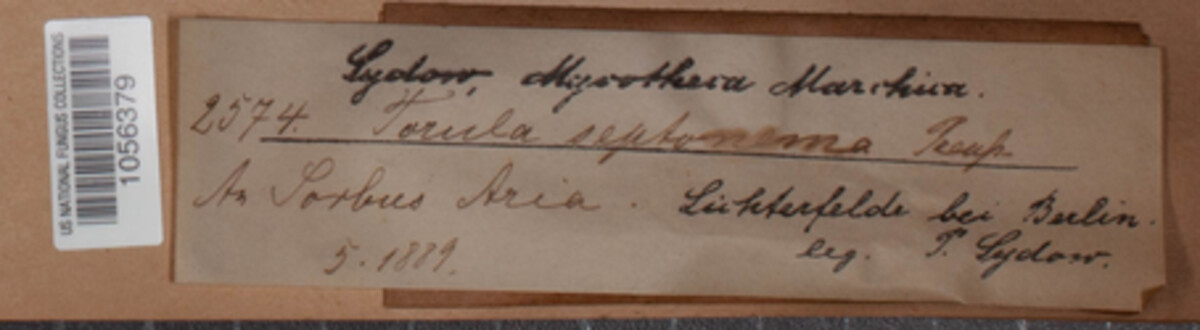 US NATIONAL FUNGUS COLLECTIONS
1056379
Sydow, Mycotheca Marchica.
2574. Torula septonema Preuss.
An Sorbus Aria.
Lichterfelde bei Berlin.
5. 1889.
leg. P. Sydow.